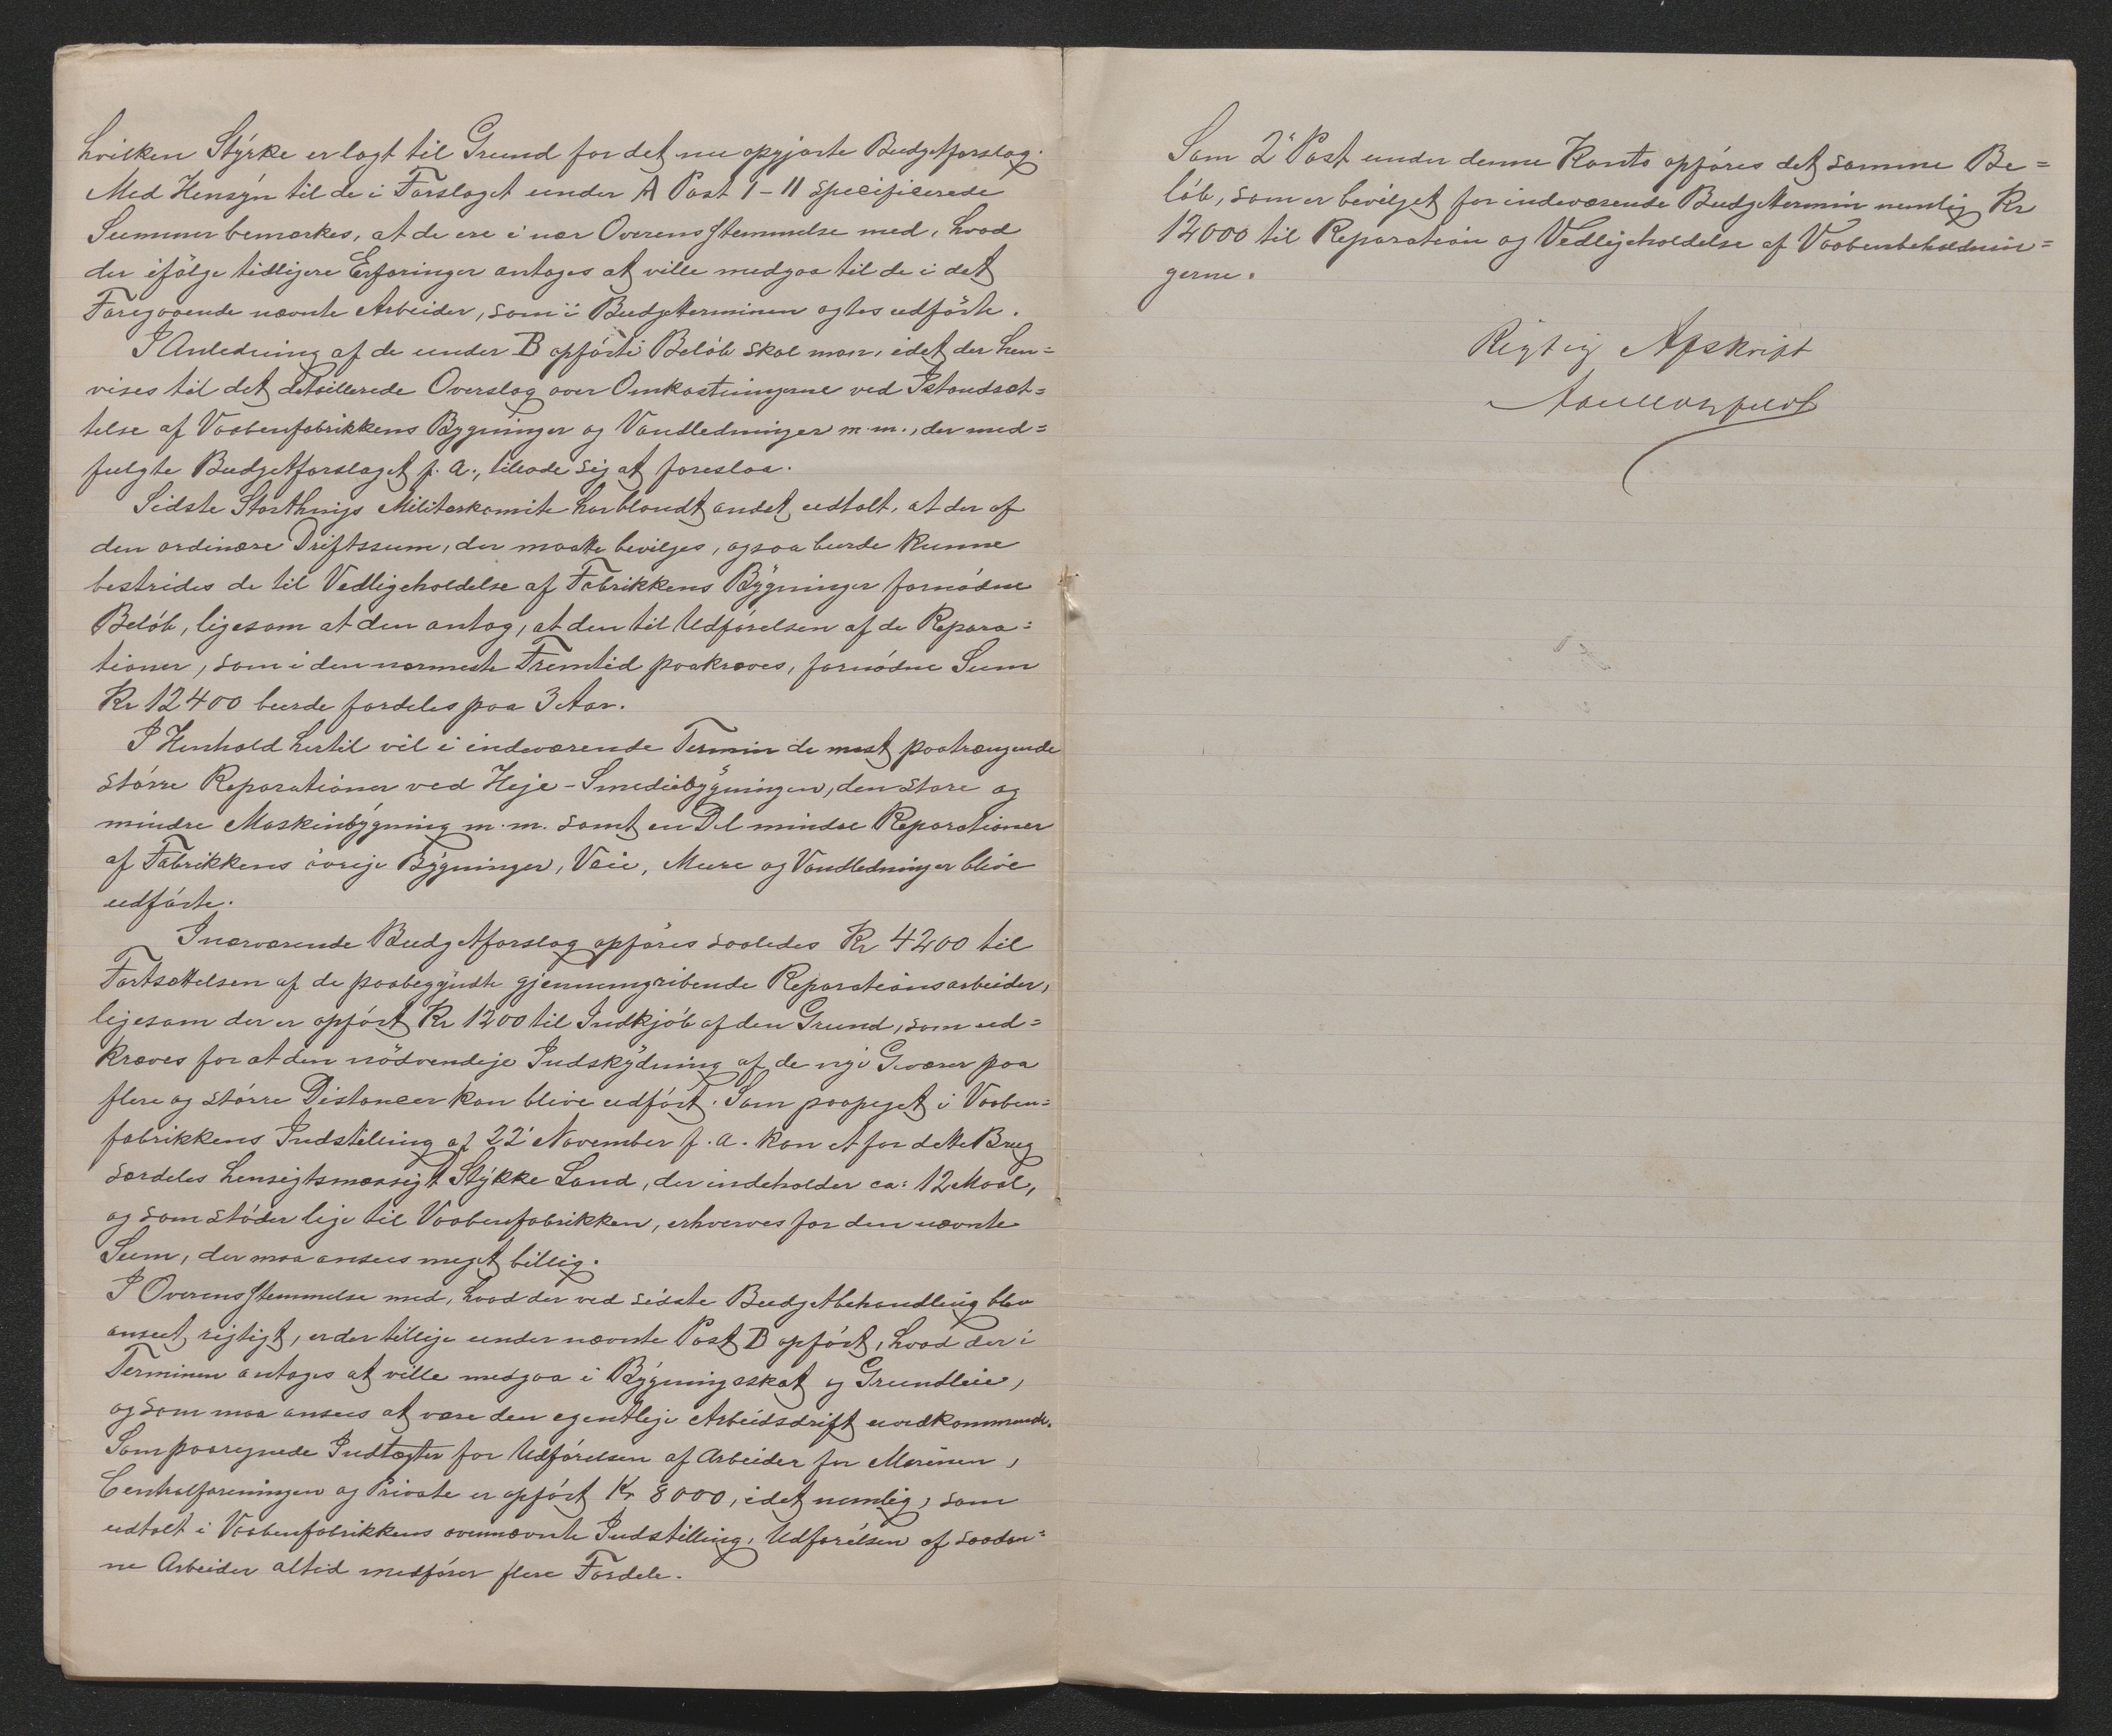 hvilken Styrke er lagt til Grund for det nu opgjorte Budgetforslag.
Med Hensyn til de i Forslaget under A Post 1-11 specificerede
Summer bemærkes, at de ere i nær Overensstemmelse med, hvad
der ifölge tidligere Erfaringer antages at ville medgaa til de i det
Foregaaende nævnte Arbeider, som i Budgetterminen agtes udförte.
I Anledning af de under B opförte Belöb skal man, idet der hen=
vises til det detaillerede Overslag over Omkostningerne ved Istandsæt=
telse af Vaabenfabrikkens Bygninger og Vandledninger m.m., der med=
fulgte Budgetforslaget f. A., tillade sig at foreslaa.
Sidste Storthings Militærkomite har blandt andet udtalt, at der af
den ordinære Driftssum, der maatte bevilges, ogsaa burde kunne
bestrides de til Vedligeholdelse af Fabrikkens Bygninger fornödne
Belöb, ligesom at den antog, at den til Udförelsen af de Repara=
tioner, som i den nærmeste Fremtid paakræves, fornödne Sum
Kr 12400 burde fordeles paa 3 Aar.
I Henhold hertil vil i indeværende Termin de mest paatrængende
större Reparationer ved Heje-Smediebygningen, den store og
mindre Maskinbygning m.m. samt en Del mindre Reparationer
af Fabrikkens övrige Bygninger, Veie, Mure og Vandledninger blive
udförte.
I nærværende Budgetforslag opföres saaledes Kr 4200 til
Fortsættelsen af de paabegyndte gjennemgribende Reparationsarbeider,
ligesom der er opfört Kr 1200 til Indkjöb af den Grund, som ud=
kræves for at den nödvendige Indskydning af de nye Geværer paa
flere og större Distancer kan blive udfört. Som paapeget i Vaaben=
fabrikkens Indstilling af 22' November f. A. kan et for dette Brug
særdeles hensigtsmæssigt Stykke Land, der indeholder ca: 12 Maal,
og som stöder lige til Vaabenfabrikken, erhverves for den nævnte
Sum, der maa ansees meget billig.
I Overensstemmelse med, hvad der ved sidste Budgetbehandling blev
anseet rigtigt, er der tillige under nævnte Post B opfört, hvad der i
Terminen antages at ville medgaa i Bygningsskat og Grundleie,
og som maa ansees at være den egentlige Arbeidsdrift uvedkommende.
Som paaregnede Indtægter for Udförelsen af Arbeider for Marinen,
Centralforeningen og Private er opfört Kr 8000, idet nemlig, som
udtalt i Vaabenfabrikkens ovennævnte Indstilling, Udförelsen af saadan=
ne Arbeider altid medförer flere Fordele.
Som 2' Post under denne Konto opföres det samme Be=
löb, som er bevilget for indeværende Budgettermin nemlig Kr
12000 til Reparation og Vedligeholdelse af Vaabenbeholdnin=
gerne.
Rigtig Afskrift